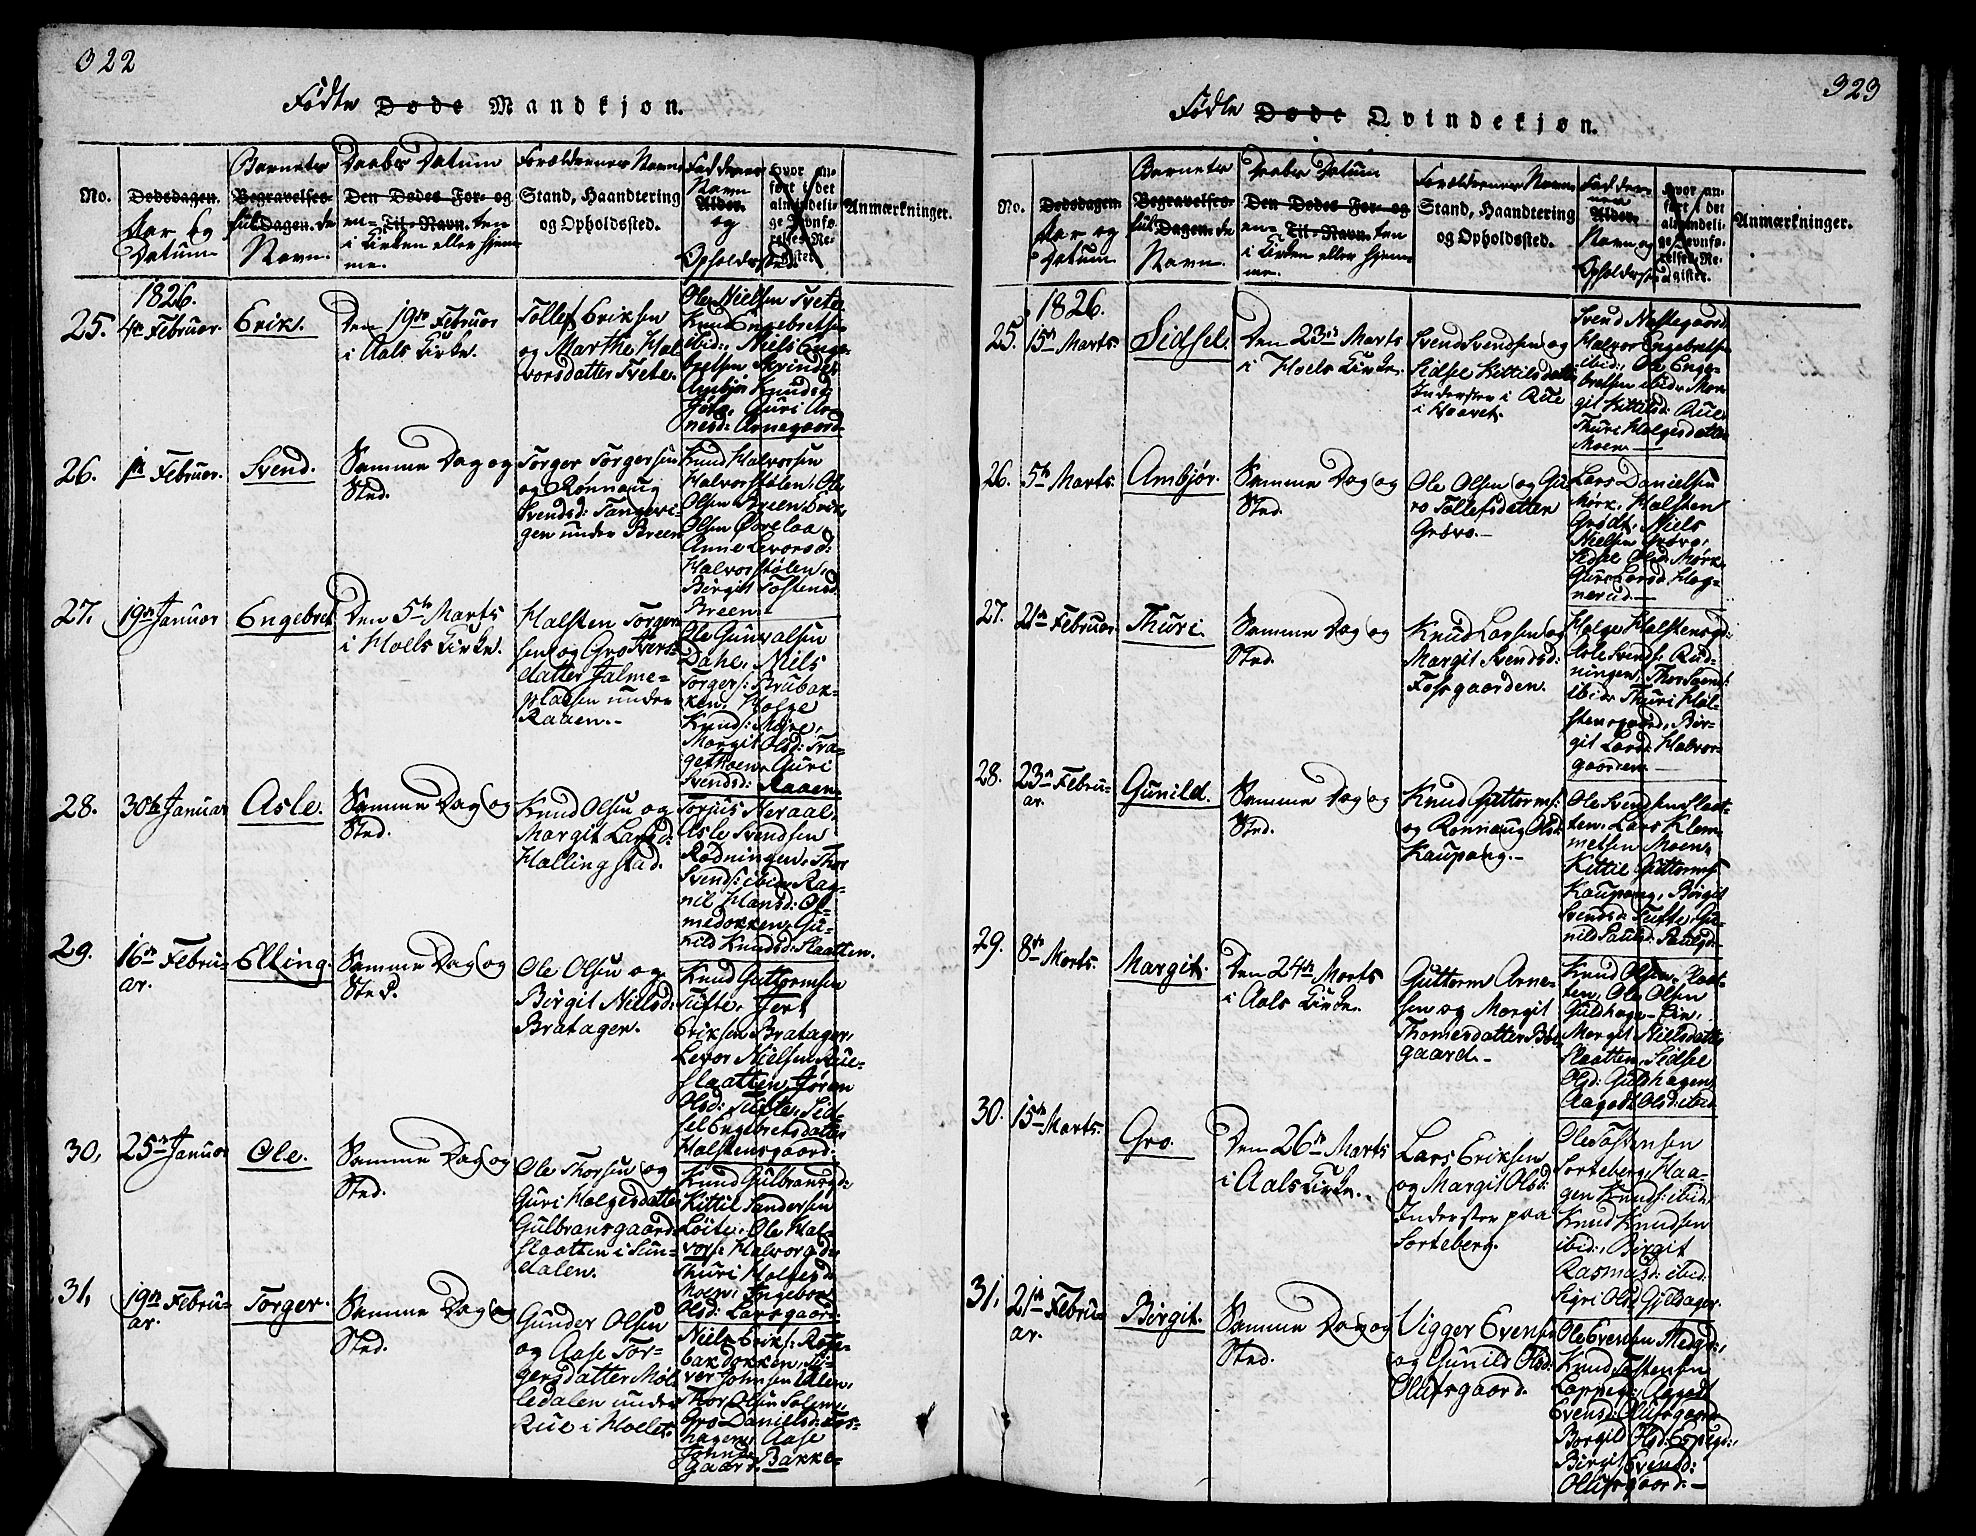 322
Fødte Døde Mandkjøn.
No.
Dødsdagen.
Aar og
Datum
Barnets
Begravelses-
Dagen. de
Navn.
Daabs Datum
Den Dødes For- og
Til-Navn. ten
i Kirken eller hjem-
me.
Forældrenes Navn,
Stand, Haandtering
og Opholdssted.
Faddernes
Navn
Alder.
og
Opholdssted.
Hvor an-
ført i det
almindeli-
ge Jevnfø-
relses-Re-
gister.
Anmærkninger.
1826.
25. 4de Februar.
Erik.
Den 19de Februar
i Aals Kirke.
Tollef Eriksen
og Marthe Hal-
vorsdatter Tvete.
Ole Nielsen Tvete,
Knud Engebretsen
ibid:, Niels Enge-
bretsen Skrinde,
Ambjør Knudsd:
Guri Ar-
nesd: Arnegaard
26. 1ste Februar.
Svend.
Samme Dag og
Sted.
Torger Torgersen
og Rønnaug
Svendsd: Tangeri-
gen under Breen
Knud Halvorsen
Halvorstølen, Ole
Olsen Breen, Erik
Olsen Øvrelaa
Anne Levorsd:
Halvorstølen,
Birgit Tostensd.
Breen.
27. 19de Januar
Engebret
Den 5te Marts
i Hols Kirke.
Halsten Torger-
sen og Gro Ivers-
datter Jalme-
pladsen under
Raaen.-
Ole Gunvalsen
Dahle, Niels
Torgers: Brubak-
ken, Holge
Knuds: Moere,
Margit Olsd: Tra-
gethoen, Guri
Svendsd: Raaen.
28. 30te Januar
Asle.
Samme Dag og
Sted.
Knud Olsen og
Margit Larsd:
Hallingstad.
Torjus Neraal,
Asle Svendsen
Rødningen, Thor
Svends: ibid: Rag-
nil Hansd:
medokken, Gu-
nild Knudsd: Slaatten.
29. 16de Febru-
ar.
Elling.
Samme Dag og
Sted.
Ole Olsen og
Birgit Nielsd:
Bratager.
Knud Guttormsen
Tufte,
Eriksen Bratager,
Levor Nielsen Rue-
slaatten, Jøran
Olsd: Tufte, Sid-
sel Engebretsdatter
Halstensgaard.
30. 25de Januar
Ole.
Samme Dag og
Sted.
Ole Thorsen og
Guri Holgesdatter
Gulbransgaard-
slaatten i Sun-
dalen.
Knud Gulbransgd:
Kittil Sandersen
Løite, Ole Hal-
vors: Halvorgd:
Thuri Holgesd:
Moen, Ingebor
Olsd: Larsgaard
31. 19de Febru-
ar.
Torger.
Samme Dag og
Sted.
Gunder Olsen
og Aase Tor-
gersdatter Møl-
ledalen under
Rue i Hollet.
Niels Eriks:
bakdokken, Si-
ver Johnsen Ulen,
Thor Olsen
Gro Danielsd:
hagen, Aase
Johnsd:
Bakke-
gaard.
323
Fødte Døde Qvindekjøn.
No.
Dødsdagen
Aar og
Datum
Barnets
Begravelses-
Dagen. de
Navn.
Daabs Datum
Den Dødes For- og
Til-Navn. ten
i Kirken eller hjem-
me.
Forældrenes Navn,
Stand, Haandtering
og Opholdssted.
Fadder-
nes
Alder.
Navn og
Opholdssted
Hvor an-
ført i det
almindeli-
ge Jevnfø-
relses-Re-
gister.
Anmærkninger.
1826.
25. 15de Marts.
Sidsel.
Den 23de Marts
i Hoels Kirke.
Svend Svendsen og
Sidsel Kittilsdatter
Inderster i Rue
i Hoavet.
Svend Nestegaard
Halvor Engebretsen
ibid:, Ole Enge-
bretsen ibid: Mar-
git Kittilsd: Rue
Thuri Holgesdatter
Moen.
26. 5te Marts.
Ambjør.
Samme Dag og
Sted.
Ole Olsen og Gu-
ro Tollefsdatter
Grøvo.-
Lars Danielsen
Mørk, Halsten
Grødt, Niels
Nielsen Grøvo,
Sidsel Olsd: Mørk
Guri Larsd: Hag-
nerud.
27. 21de Februar.
Thuri.
Samme Dag og
Sted.
Knud Larsen og
Margit Svendsd:
Fossgaarden.
Holge Halstensgd:
Asle Svends: Rød-
ningen, Thor Svends:
ibid: Thuri Hal-
stensgaard, Bir-
git Larsd: Halvor-
gaarden.
28. 23de Febru-
ar.
Gunild.
Samme Dag og
Sted.
Knud Guttorms:
og Rønnaug Olsd:
Kaupang.-
Ole Svendsen Slaat-
ten, Lars Klem-
metsen Moen,
Kittil Guttorms:
Kaupang, Birgit
Svendsd: Tufte, Gu-
nild Paulsd: Paulsgd:
29. 8de Marts.
Margit.
Den 24de Marts
i Aals Kirke.
Guttorm Arne-
sen og Margit
Thomesdatter
gaard.-
Knud Olsen Slaat-
ten, Ole Olsen
Guldhagen
Margit Nielsdatter
Slaatten, Sidsel
Olsd: Guldhagen,
Aagodt Olsd: ibid.
30. 15de Marts.
Gro.
Den 26de Marts
i Aals Kirke.
Lars Eriksen
og Margit Olsd:
Inderster paa
Sorteberg.
Ole Tostensen
Sorteberg, Haa-
gen Knuds: ibid
Knud Knudsen
ibid:, Birgit
Rasmusd: ibid:
Sigri Olsd: Gjelsager
31. 21de Febru-
ar.
Birgit.
Samme Dag og
Sted.
Vigger Evensen
og Gunild Olsd:
Olufsgaard.
Ole Evensen Medgd:,
Knud Tostensen
Lappeg:, Aagodt
Evensd: Olufsgaard
Borgil Olsd: Espegd:,
Birgit Evensd:
Olufsgaard.-